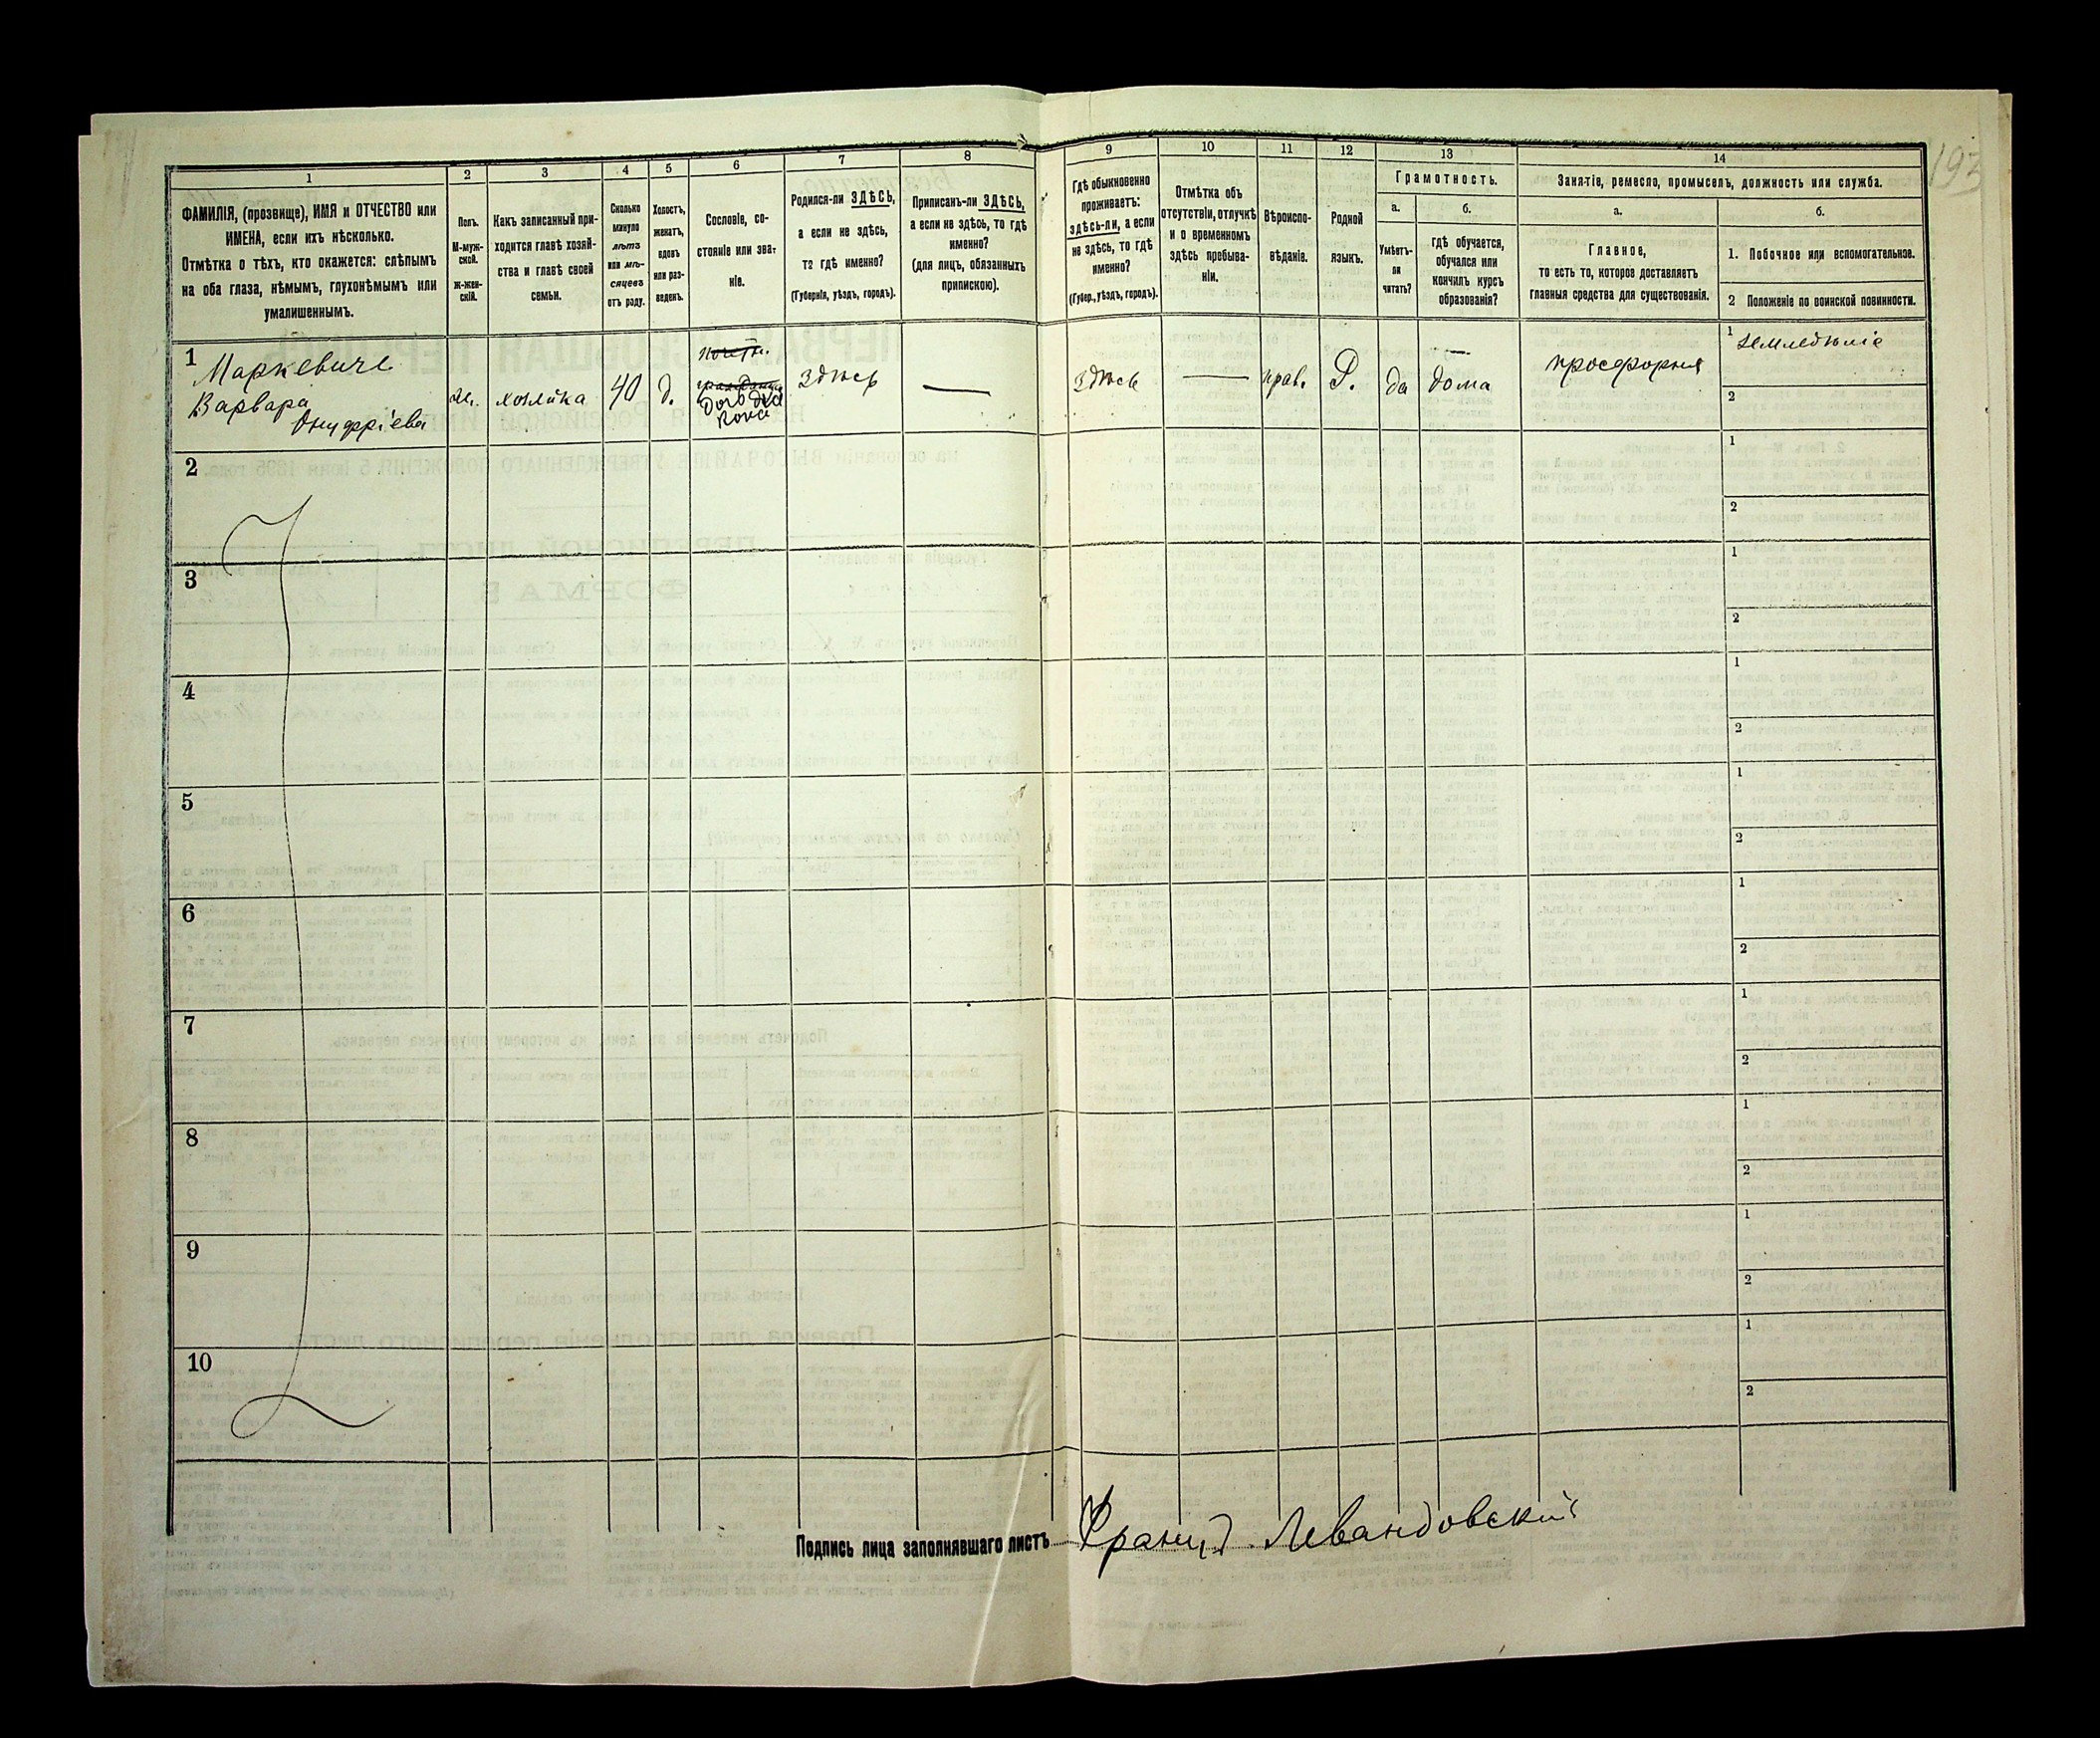 193
1
2
3
4
5
6
7
8
9
10
11
12
13
14
ФАМИЛІЯ, (прозвище), ИМЯ и ОТЧЕСТВО или
ИМЕНА, если ихъ нѣсколько.
Отмѣтка о тѣхъ, кто окажется: слѣпымъ
на оба глаза, нѣмымъ, глухонѣмымъ или
умалишеннымъ.
Полъ.
М-муж-
ской.
ж-жен-
скій.
Какъ записанный при-
ходится главѣ хозяй-
ства и главѣ своей
семьи.
Сколько
минуло
лѣтъ
или мѣ-
сяцевъ
отъ роду.
Холостъ,
женатъ,
вдовъ
или раз-
веденъ.
Сословіе, со-
стояніе или зва-
ніе.
Родился-ли ЗДѢСЬ,
а если не здѣсь,
то гдѣ именно?
(Губернія, уѣздъ, городъ).
Приписанъ-ли ЗДѢСЬ,
а если не здѣсь, то гдѣ
именно?
(для лицъ, обязанныхъ
припискою).
Гдѣ обыкновенно
проживаетъ:
здѣсь-ли, а если
не здѣсь, то гдѣ
именно?
(Губер., уѣздъ, городъ).
Отмѣтка объ
отсутствіи, отлучкѣ
и о временномъ
здѣсь пребыва-
ніи.
Вѣроиспо-
вѣданіе.
Родной
языкъ.
Грамотность.
а.
Умѣетъ-
ли
читать?
б.
гдѣ обучается,
обучался или
кончилъ курсъ
образованія?
Занятіе, ремесло, промыселъ, должность или служба.
а.
Главное,
то есть то, которое доставляетъ
главныя средства для существованія.
б.
1. Побочное или вспомогательное.
2 Положеніе по воинской повинности.
1
Маркевичъ
Варвара
Онуфріева
ж.
хозяйка
40
д.
почетн.
здѣсь
—
здѣсь
—
прав.
Р.
да
—
дома
просфорня
1
земледѣліе
2
2
1
2
3
1
2
4
1
2
5
1
2
6
1
2
7
1
2
8
1
2
9
1
2
10
1
2
Подпись лица заполнявшаго листъ Францъ Левандовскій